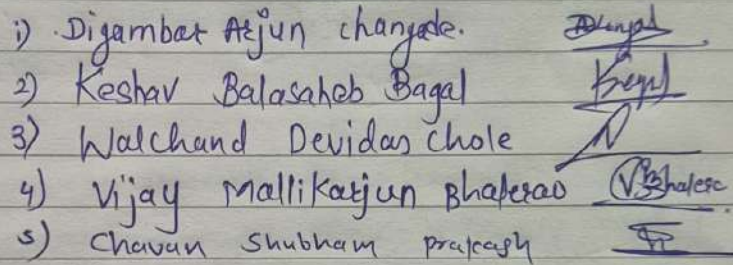 i) Digambar Arjun changade.
2) Keshav Balasaheb Bagal
3) Walchand Devidas Chole
4) Vijay Mallikarjun Bhalerao
5) Chavan Shubham prakash